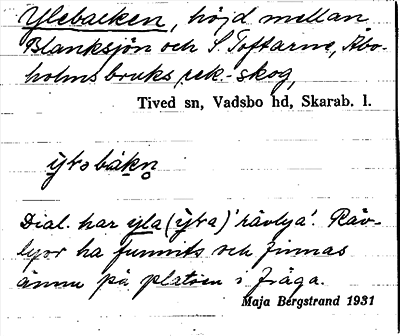 Ylebacken, höjd mellan
Blanksjön och S Toftarne, Åbo-
holmsbruks rek.-skog,
Tived sn, Vadsbo hd, Skarab. l.
Dial. har yla (ỳɩa) 'rävlya'. Räv-
lyor ha funnits och finnas
ännu på platsen i fråga.
Maja Bergstrand 1931